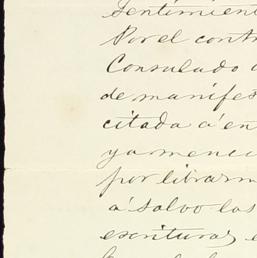 sentimien
Por el contr
Consulado
de manifes
citada á en
ya menci
por librarm
á salvo las
escrituras